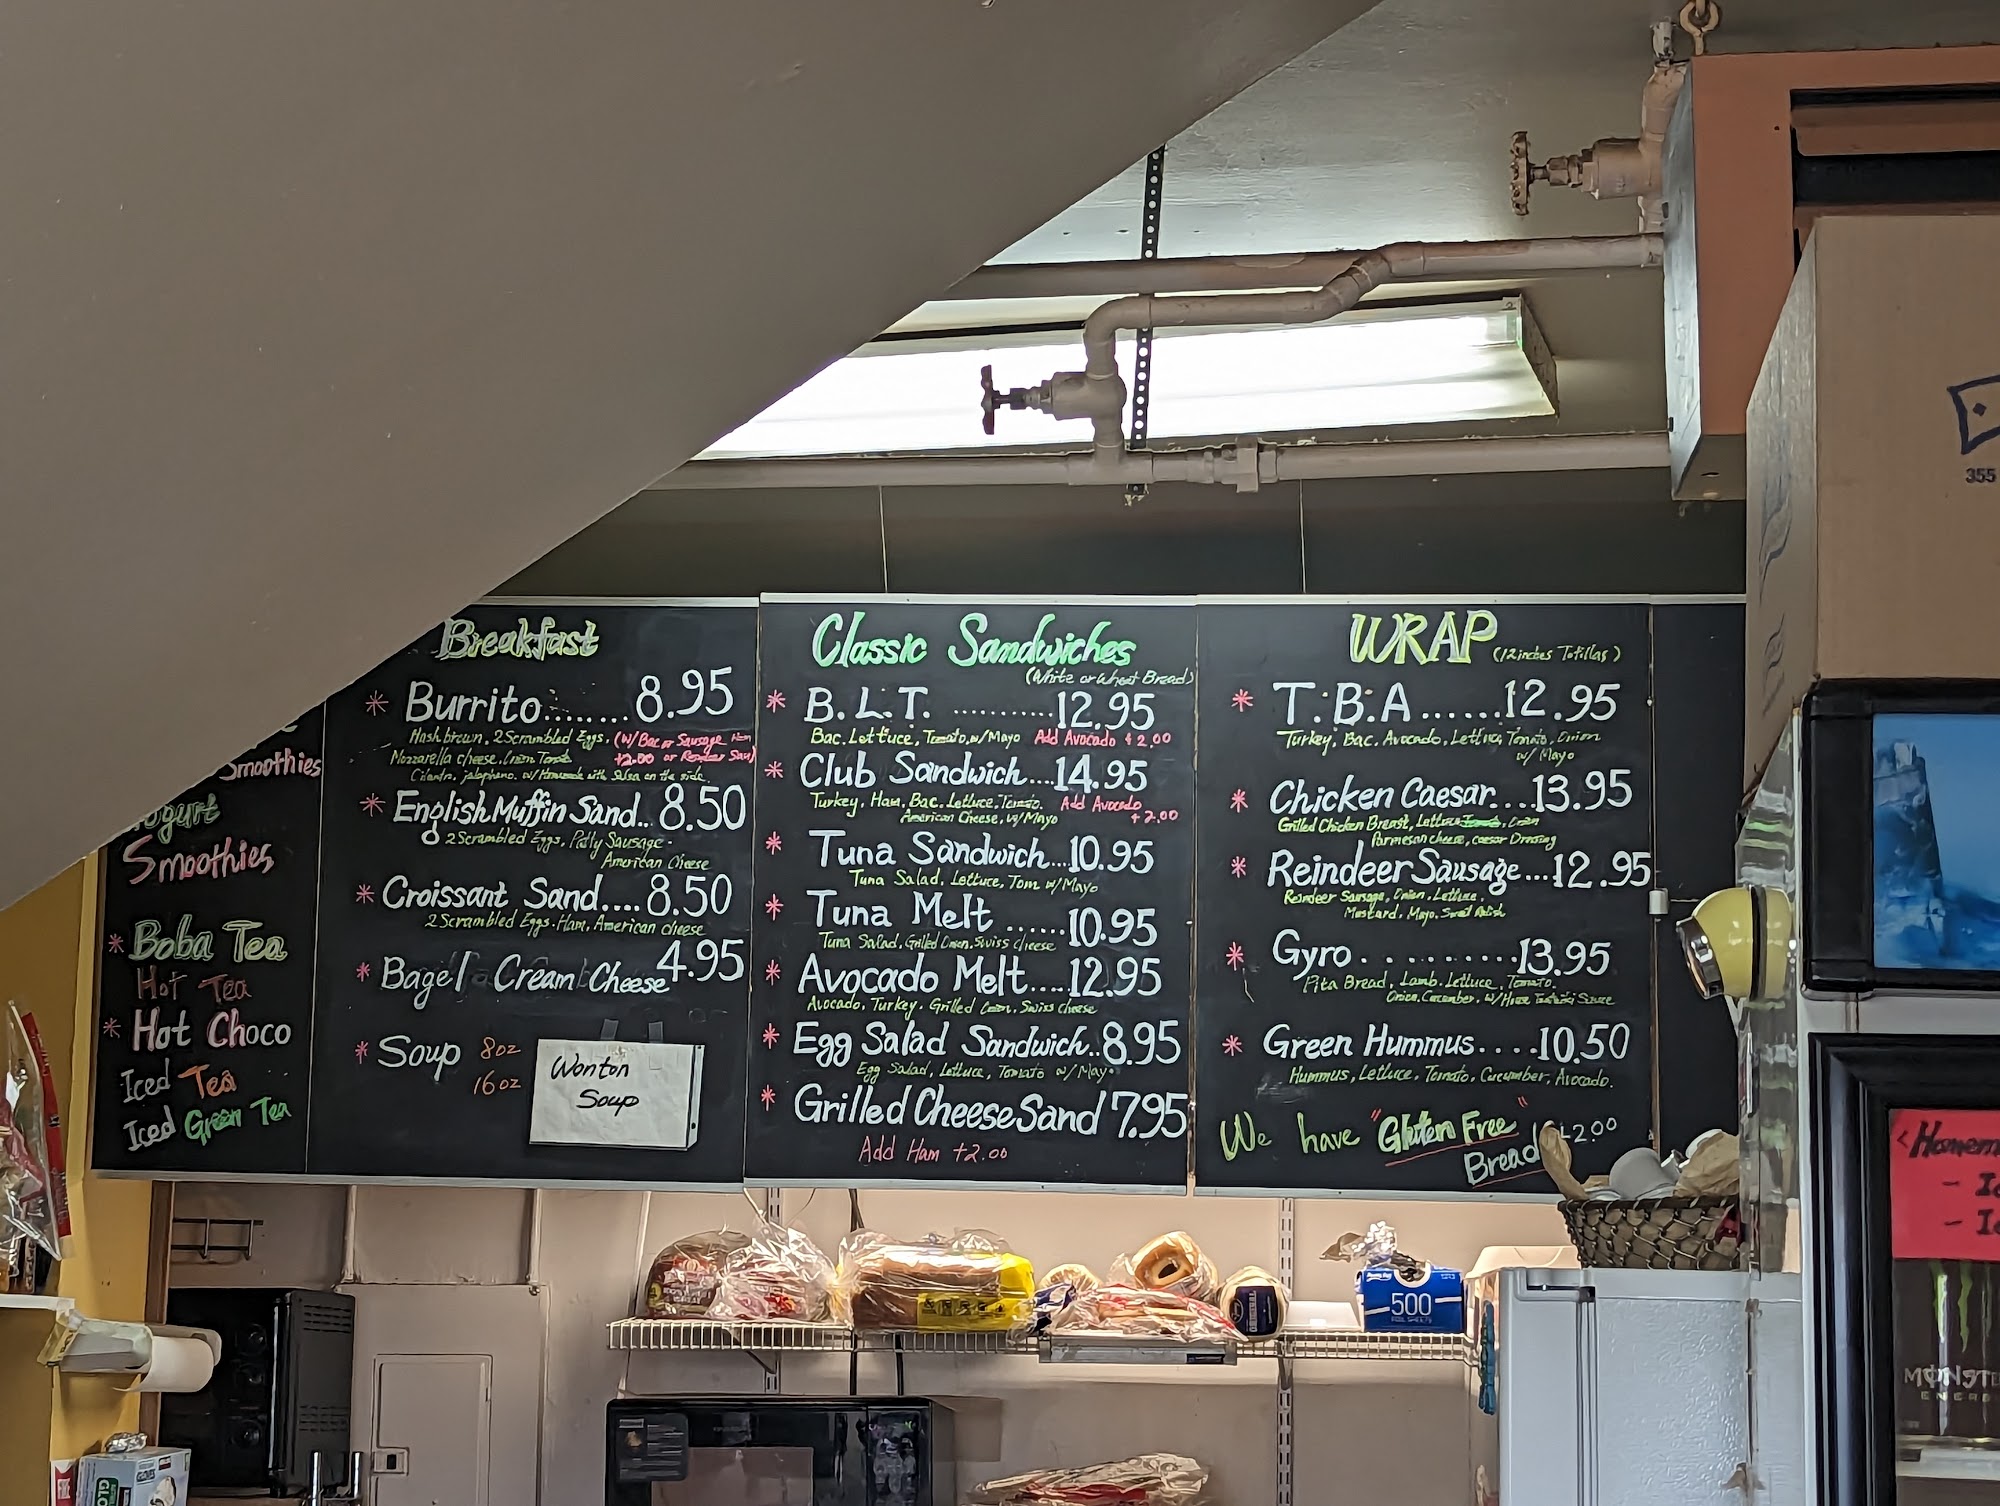 Smoothies
Yogurt
Smoothies
* Boba Tea
Hot Tea
* Hot Choco
Iced Tea
Iced Green Tea
Breakfast
* Burrito........8.95
Hashbrown, 2 Scrambled Eggs, (w/ Bac or Sausage
Mozzarella cheese, +2.00 or Reindeer
Cilantro, jalapheno. w/ on the side.
* English Muffin Sand.. 8.50
2 Scrambled Eggs, Patty Sausage
American Cheese
* Croissant Sand.... 8.50
2 Scrambled Eggs. Ham, American cheese
* Bagel Cream Cheese 4.95
* Soup 8oz
16oz
Wonton
Soup
Classic Sandwiches
(White or Wheat Bread)
* B.L.T. ...........12.95
Bac. Lettuce, Tomato, w/ Mayo Add Avocado + 2.00
* Club Sandwich....14.95
Turkey, Ham, Bac. Lettuce, Tomato. Add Avocado
American Cheese, w/ Mayo + 2.00
* Tuna Sandwich...10.95
Tuna Salad, Lettuce, Tom w/ Mayo
* Tuna Melt ......10.95
Tuna Salad, Grilled Onion, Swiss cheese
* Avocado Melt....12.95
Avocado, Turkey, Grilled Onion, Swiss cheese
* Egg Salad Sandwich..8.95
Egg Salad, Lettuce, Tomato w/ Mayo
* Grilled Cheese Sand 7.95
Add Ham +2.00
WRAP (12 inches Totillas)
* T.B.A......12.95
Turkey, Bac, Avocado, Lettuce, Tomato, Onion
w/ Mayo
* Chicken Caesar....13.95
Grilled Chicken Breast, Lettuce,
Parmesan cheese, caesar Dressing
* Reindeer Sausage...12.95
Reindeer Sausage, Onion, Lettuce,
Mustard, Mayo,
* Gyro..........13.95
Pita Bread, Lamb, Lettuce, Tomato,
Onion, Cucumber, w/ House Sauce
* Green Hummus....10.50
Hummus, Lettuce, Tomato, Cucumber, Avocado.
We have "Gluten Free"
Bread 2.00
355
500
MONSTER
ENERGY